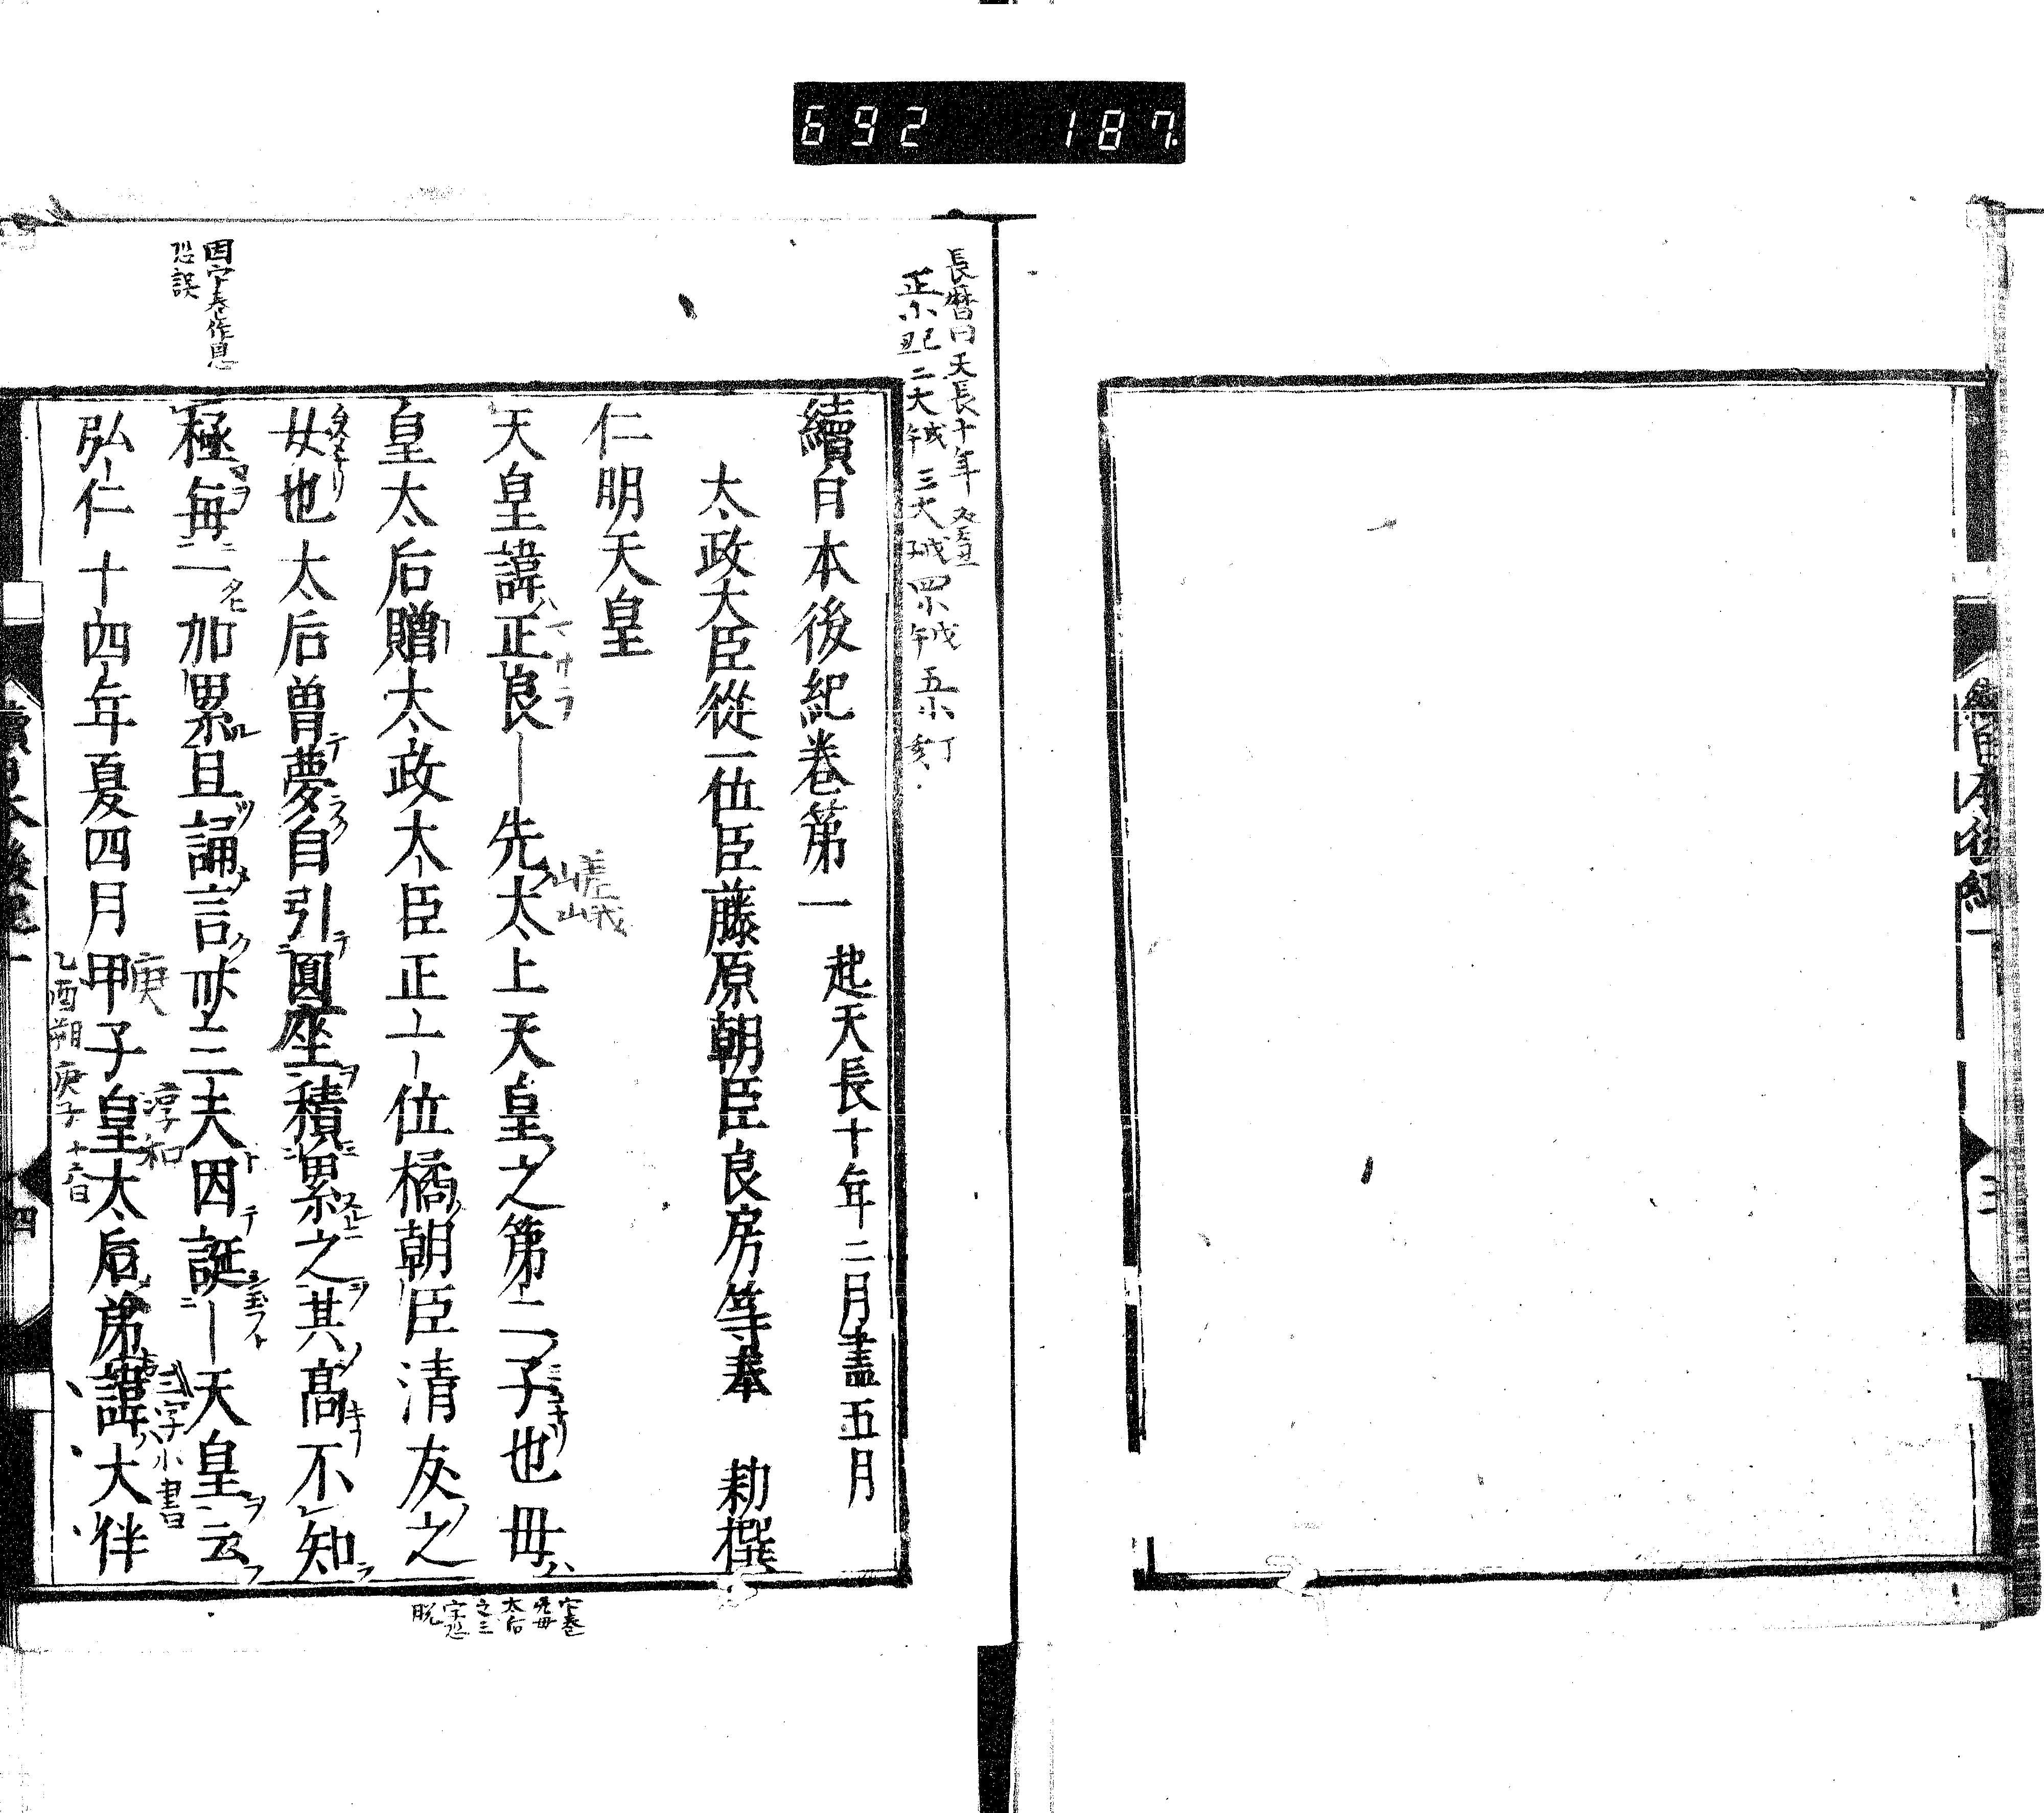 692 187
長暦曰天長十年癸丑
正小己丑 二大戊午 三大戊子 四小戊午 五小丁亥
續日本後紀卷第一 起天長十年二月盡五月
太政大臣從一位臣藤原朝臣良房等奉 勅撰
仁明天皇
天皇諱正良先太上天皇之第二子也母
嵯峨
皇太后贈太政大臣正一位橘朝臣清友之
女也太后曽夢自引圓座積累之其髙不知
極毎一加累且誦言卅三天因誕天皇云
弘仁十四年夏四月甲子皇太后弟諱大伴
庚
淳和
三字小書
乙酉朔庚子十六日
因字卷作思
恐誤
太后
之三
字恐
脱
續日本後紀一
三
四